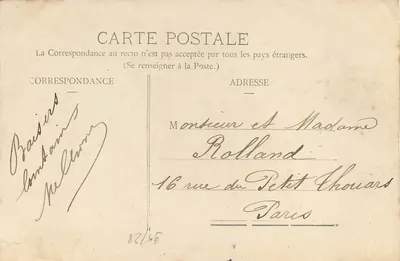 CARTE POSTALE
La Correspondance au recto n'est pas acceptée par tous les pays étrangers.
(Se renseigner à la Poste.)
CORRESPONDANCE
ADRESSE
Baisers
lointains
Monsieur et Madame
Rolland
16 rue du Petit Thouars
Paris